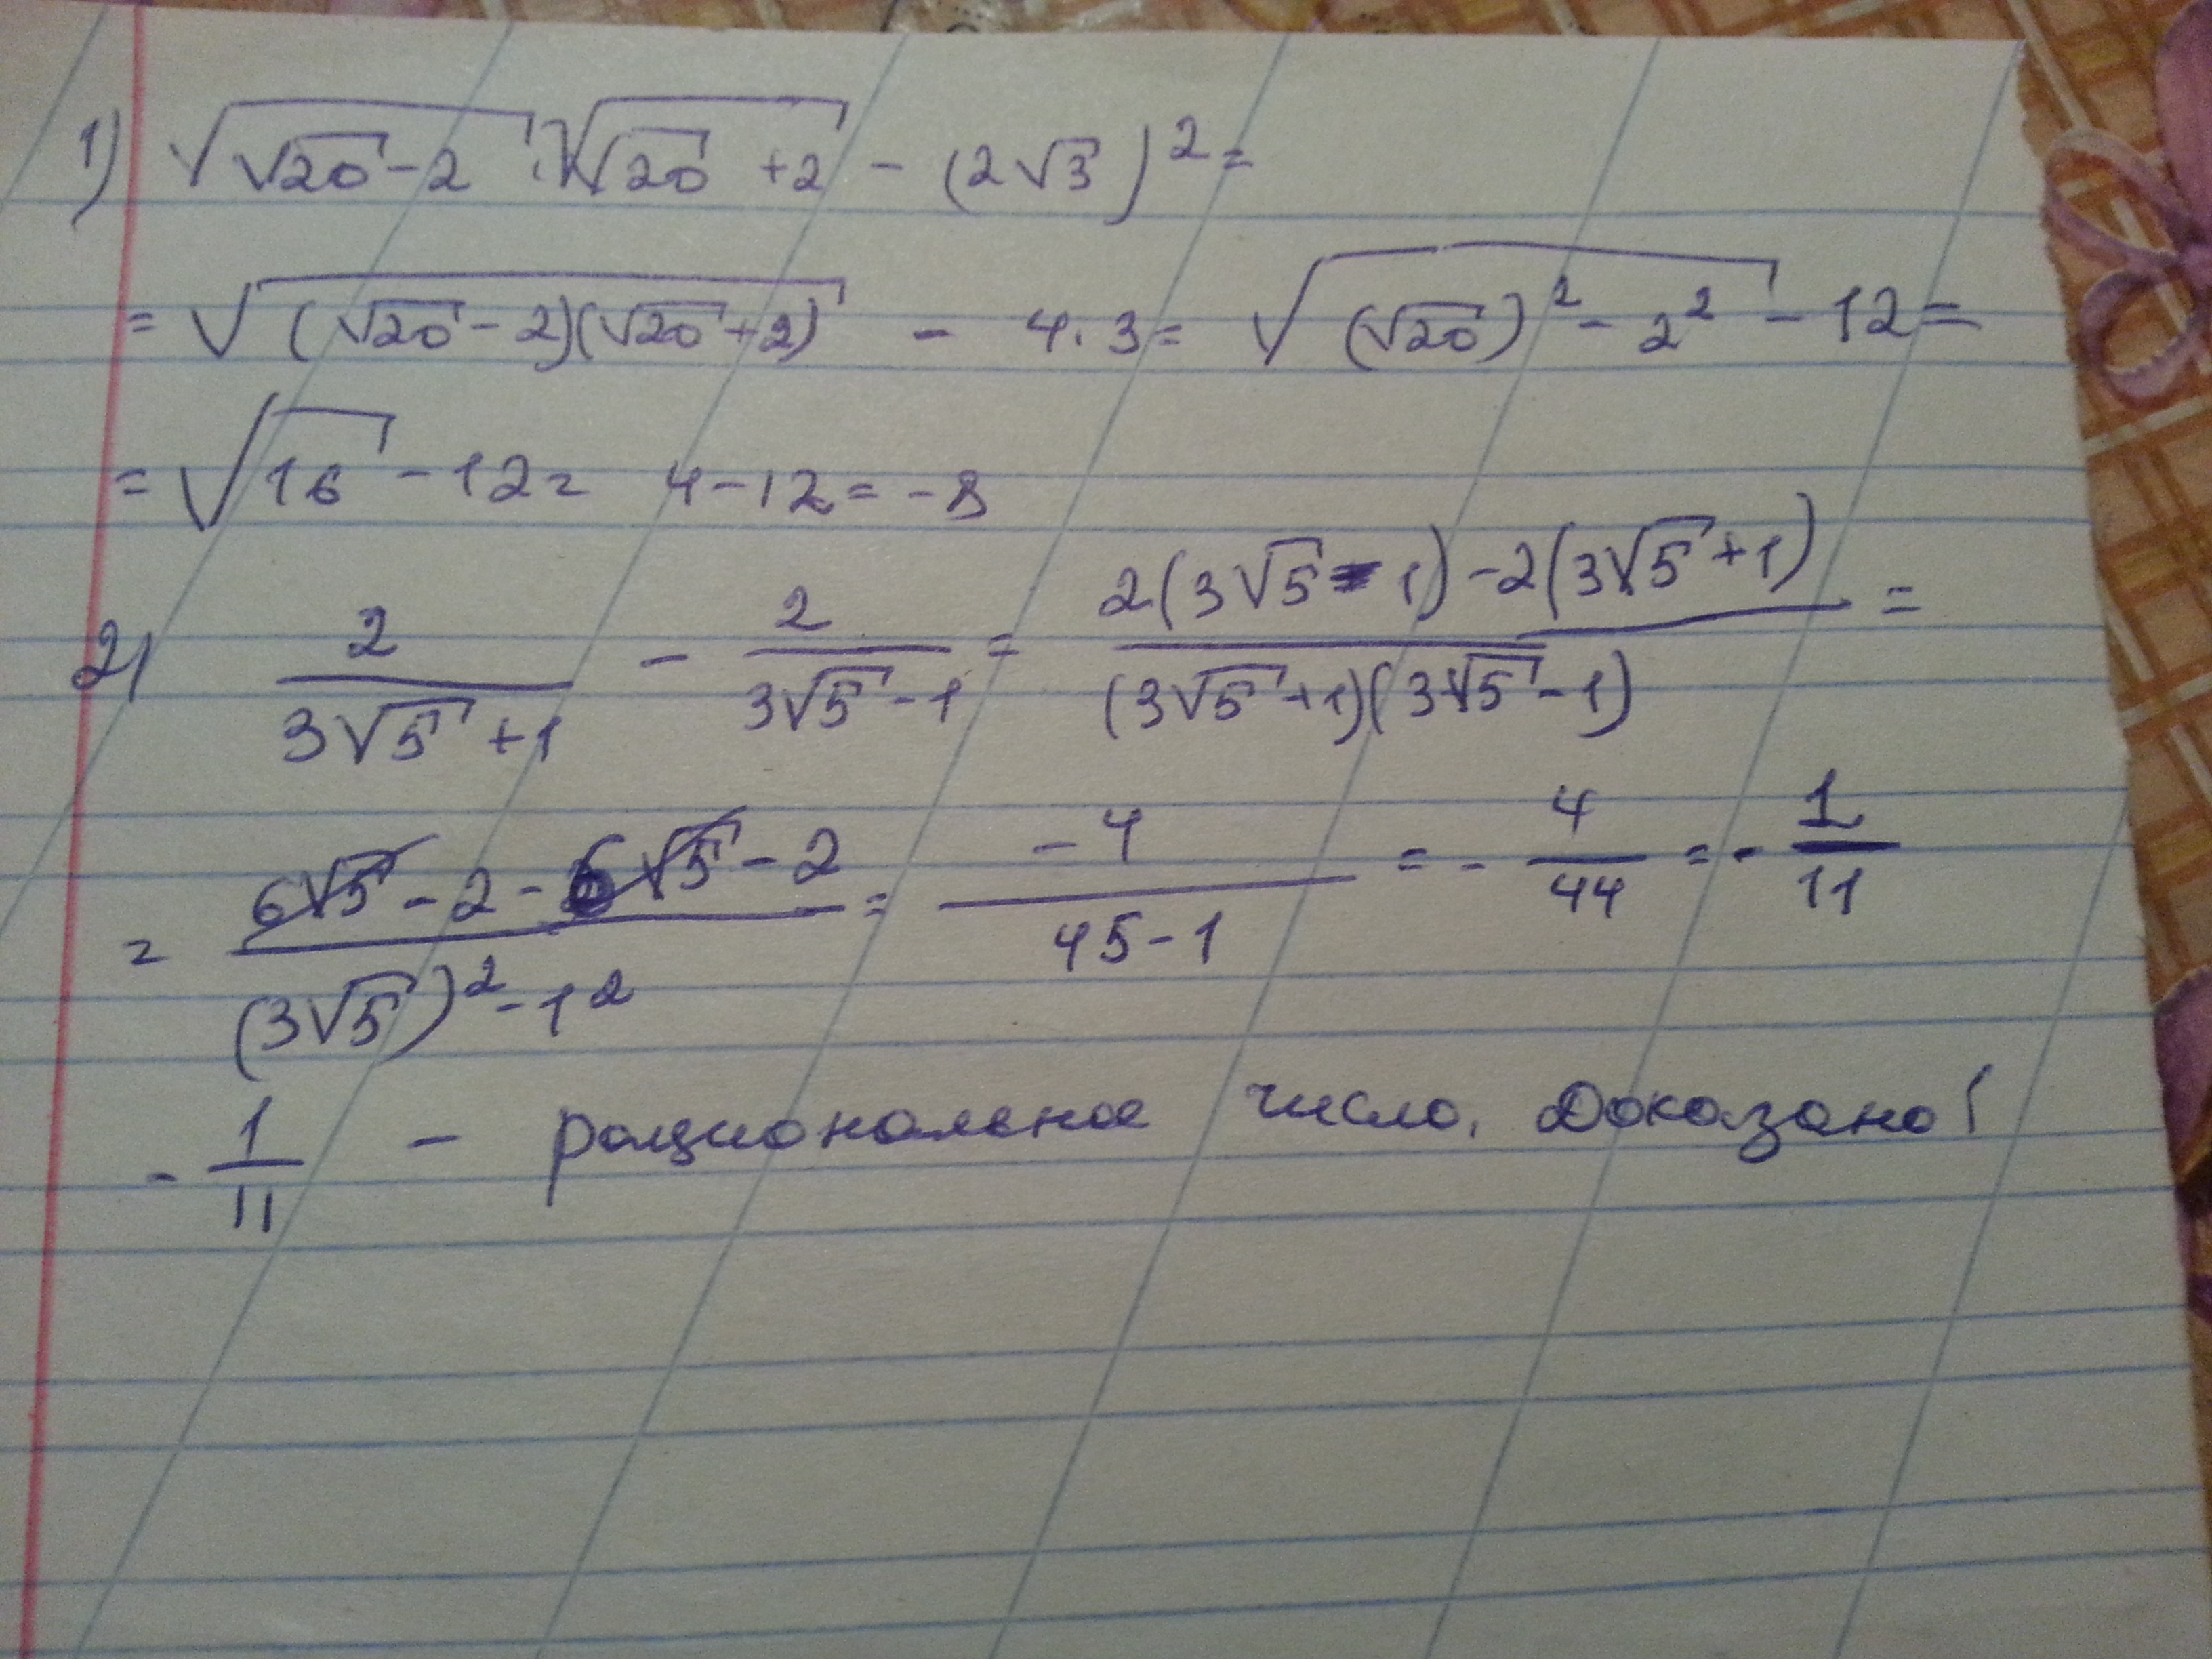 1) √(√20 - 2) · √(√20 + 2) - (2√3)² =
= √((√20 - 2)(√20 + 2)) - 4 · 3 = √((√20)² - 2²) - 12 =
= √16 - 12 = 4 - 12 = -8
2) 2/(3√5 + 1) - 2/(3√5 - 1) = (2(3√5 - 1) - 2(3√5 + 1))/((3√5 + 1)(3√5 - 1)) =
= (6√5 - 2 - 6√5 - 2)/((3√5)² - 1²) = -4/(45 - 1) = - 4/44 = - 1/11
- 1/11 - рациональное число. Доказано!